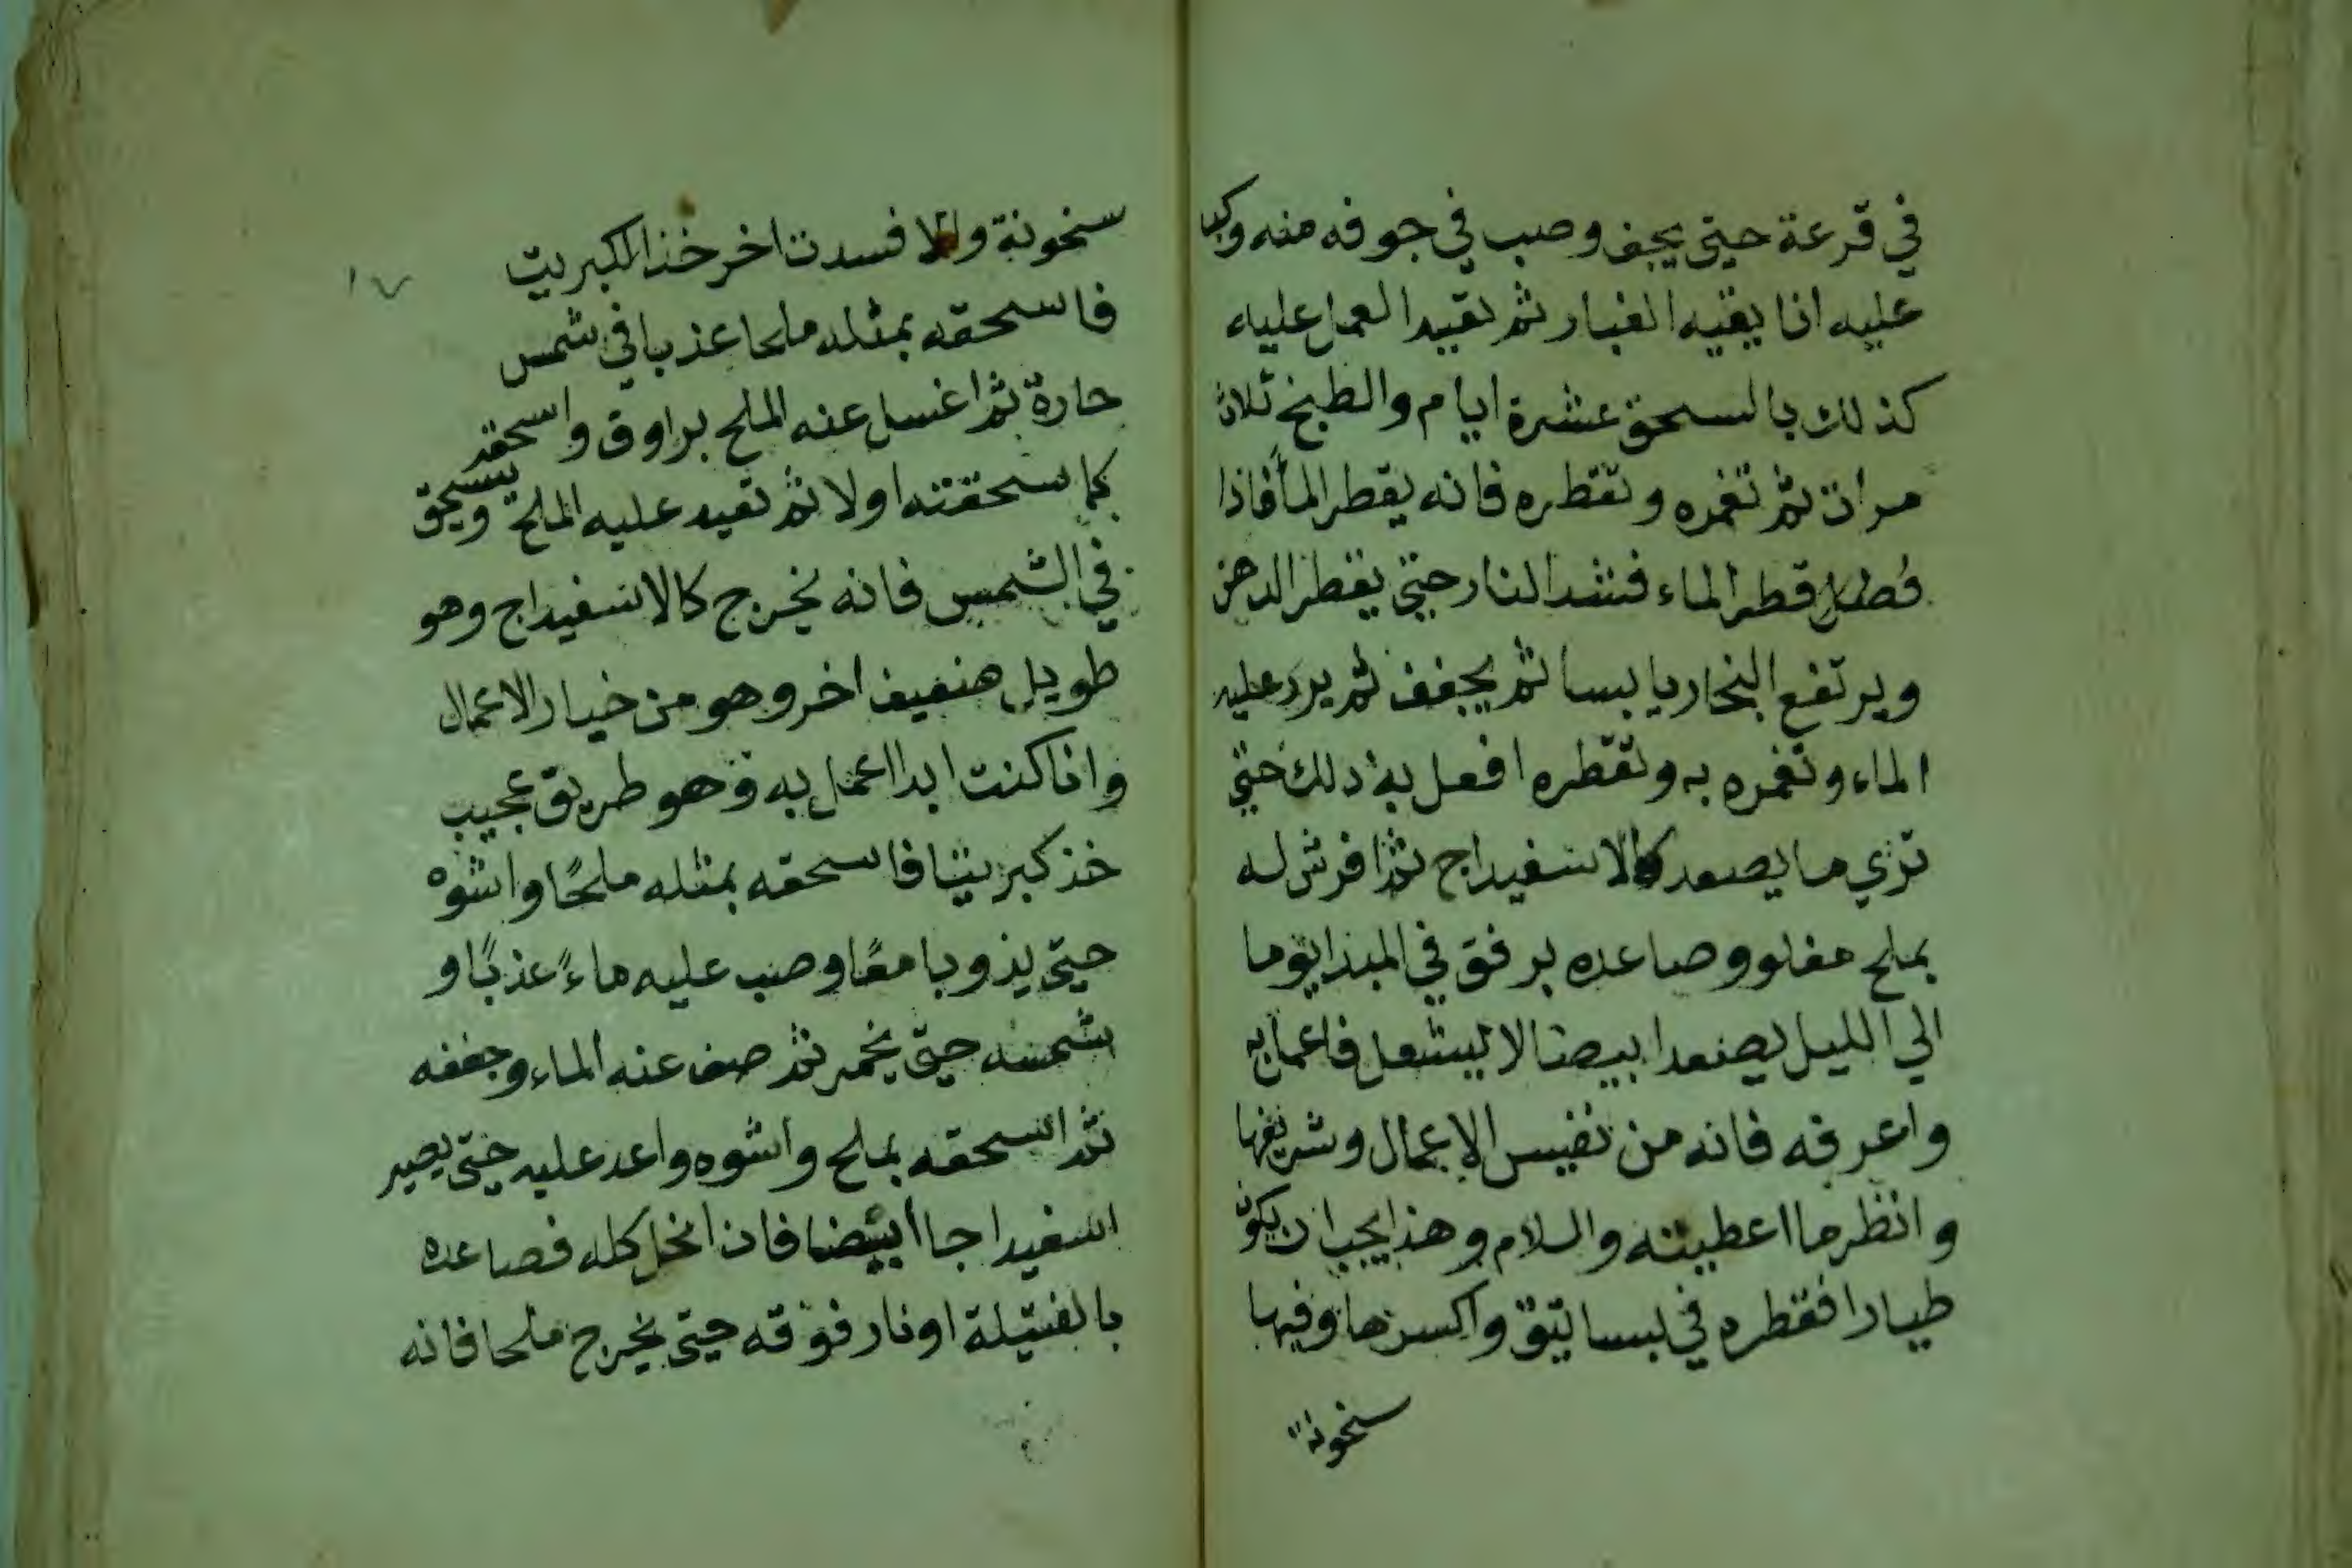 في قرعة حتى يجف وصب في جوفه منه وكب
عليه انا يقيه الغبار ثم تقيد العمل عليه
كذلك بالسحق عشرة ايام والطبخ ثلاث
مرات ثم تغمره وتقطره فانه يقطر المأ فاذا
قطر الماء فشد النار حتى يقطر الدهن
ويرتفع البخار يابسا ثم يجفف ثم يرد عليه
الماء وتغمره به وتقطره افعل به ذلك حتى
تري ما يصعد كالاسفيداج ثم افرش له
بملح مغلو وصاعده برفق في المبدا يوما
الي الليل يصعد ابيضا لا يشعل فاعمل به
واعرفه فانه من نفيس الاعمال وشريفها
وانظر ما اعطيته والسلام وهذا يجب ان يكون
طيارا فقطره في بساتيق واكسرها وفيها
سخونة
سخونة والا فسدت اخر خذ الكبريت
١٧
فاسحقه بمثله ملحا عذبا في شمس
حارة ثم اغسل عنه الملح براوق واسحقه
كما سحقته اولا ثم تعيد عليه الملح ويسحق
في الشمس فانه يخرج كالاسفيداج وهو
طويل اخر وهو من خيار الاعمال
وانا كنت ابدا اعمل به وهو طريق عجيب
خذ كبريتا فاسحقه بمثله ملحًا واشوه
حتى يذوبا معًا وصب عليه ماءً عذبًا و
شمسه حتى يخمر ثم صف عنه الماء وجففه
ثم اسحقه بملح واشوه واعد عليه حتى يصير
اسفيداجا أبيضا فان انحل كله فصاعده
بالفتيلة او نار فوقه حتى يخرج ملحا فانه